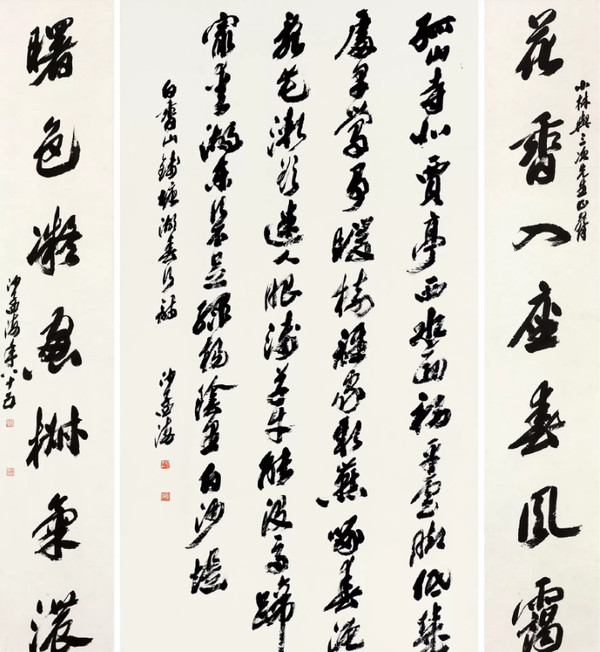 花香入座春風靄
小林與三次先生正
孤山寺北賈亭西水面初平雲腳低幾
處早鶯爭暖樹誰家新燕啄春泥
亂花漸欲迷人眼淺草才能沒馬蹄
最愛湖東行不足綠楊陰里白沙堤
白香山錢塘湖春行
沙孟海
曙色凝窗椒氣濃
沙孟海年八十五